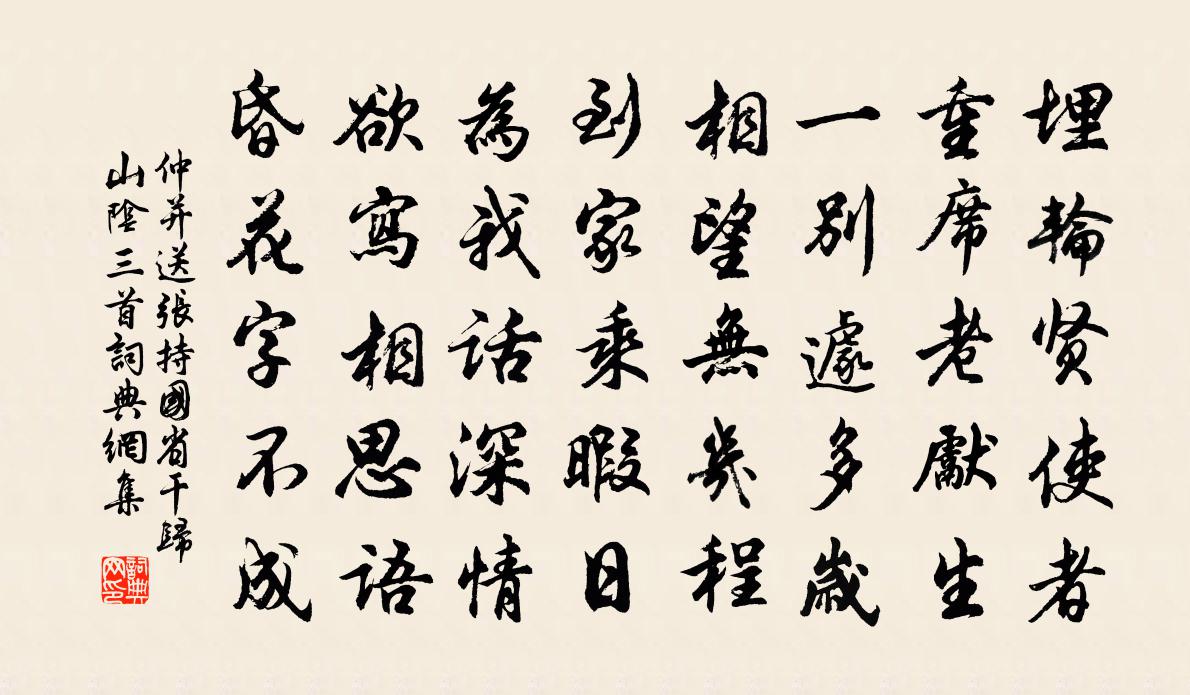 埋輪贤使者
重席老獻生
一别遽多歲
相望無幾程
到家乘暇日
為我話深情
欲寫相思語
昏花字不成
仲并送張持國省干歸
山陰三首詞典網集
詞典
网印